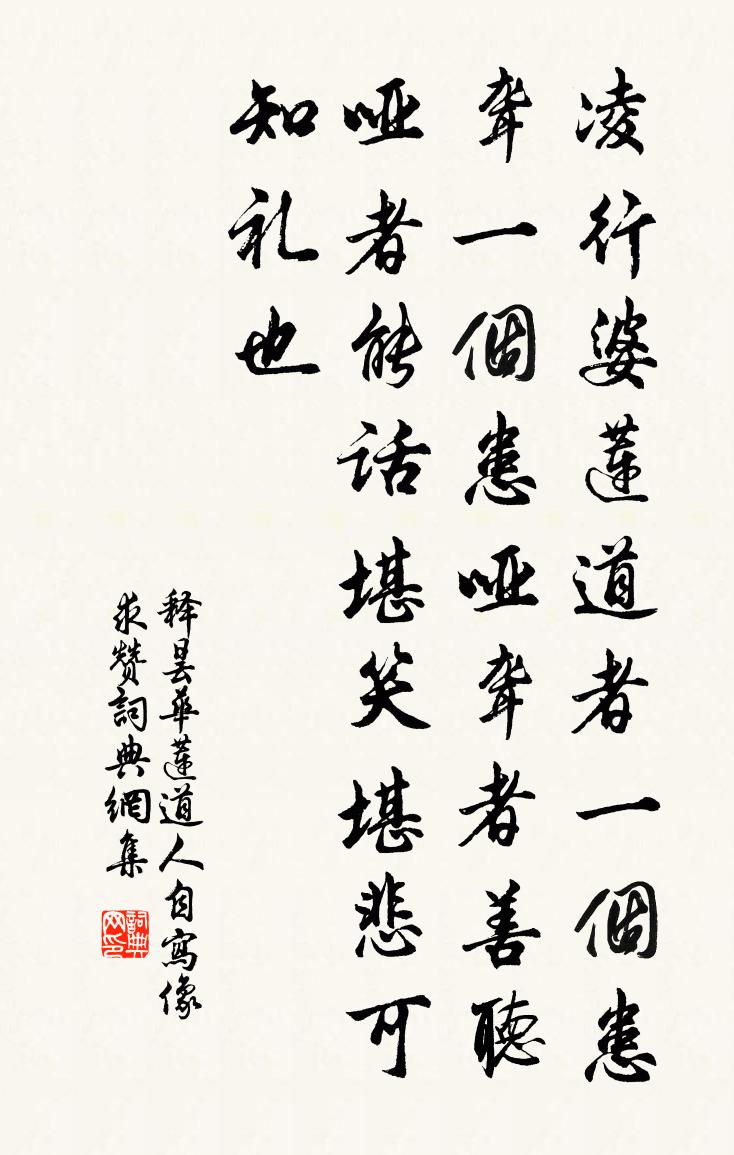 凌行婆蓮道者一個患
聋一個患哑聋者善聽
哑者能话堪笑堪悲可
知礼也
释昙華蓮道人自寫像
求赞詞典網集
詞典网印